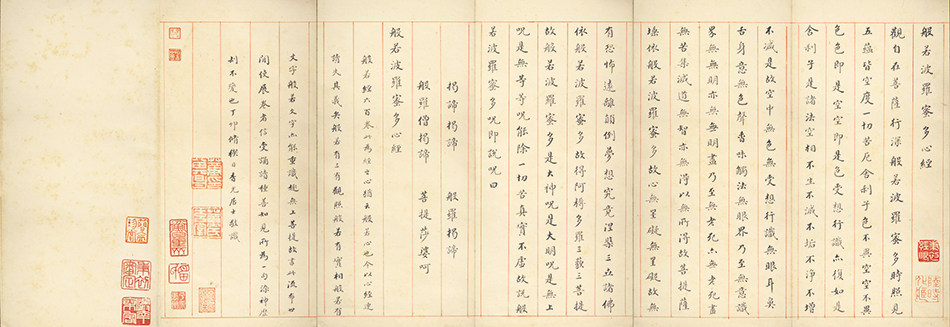 般若波羅蜜多心經
觀自在菩薩行深般若波羅蜜多時照見
五蘊皆空度一切苦厄舍利子色不異空空不異
色色即是空空即是色受想行識亦復如是
舍利子是諸法空相不生不滅不垢不淨不增
不減是故空中無色無受想行識無眼耳鼻
舌身意無色聲香味觸法無眼界乃至無意識
界無無明亦無無明盡乃至無老死亦無老死盡
無苦集滅道無智亦無得以無所得故菩提薩
埵依般若波羅蜜多故心無罣礙無罣礙故無
有恐怖遠離顛倒夢想究竟涅槃三世諸佛
依般若波羅蜜多故得阿耨多羅三藐三菩提
故般若波羅蜜多是大神呪是大明呪是無上
呪是無等等呪能除一切苦真實不虛故說般
若波羅蜜多呪即說呪曰
揭諦揭諦 般羅揭諦
般羅僧揭諦 菩提莎婆呵
般若波羅蜜多心經
般若經六百卷此為經之心猶云般若心也今以心經連
讀失其義矣般若有三有觀照般若有實相般若有
文字般若文字亦能熏識趣無上菩提故書此流布世
間使展卷者信受誦種善知見所為一句染神歷
劫不變也丁卯脩禊日香光居士敬識